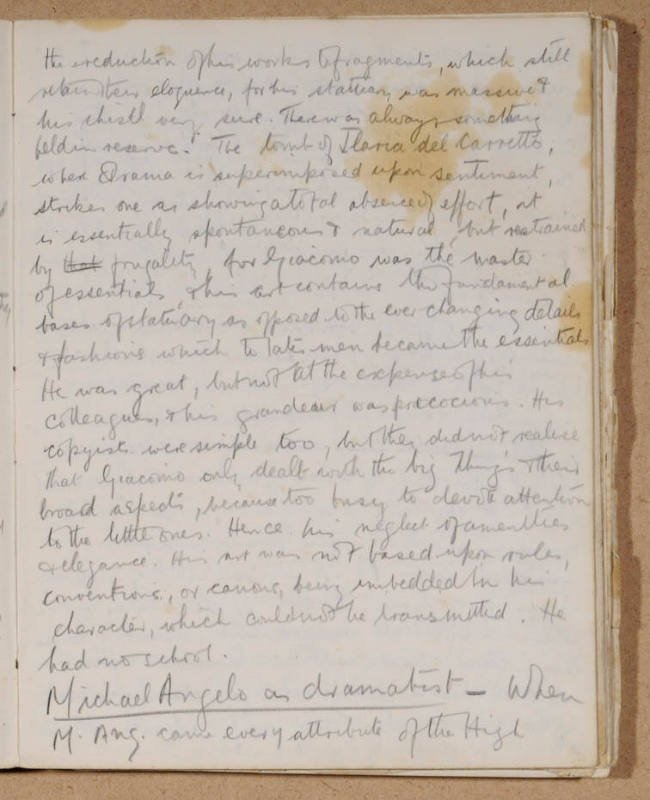 the reduction of his works to fragments, which still
retain their eloquence, for his statuary was massive &
his chisell very sure. There was always something
held in reserve. The tomb of Ilaria del Carretto,
where Drama is superimposed upon sentiment,
strikes one as showing a total absence of effort, it
is essentially spontaneous & natural, but restrained
by that frugality, for Giacomo was the master
of essentials, & his art contains the fundamental
bases of statuary as opposed to the ever changing details
& fashions which to later men became the essentials
He was great, but not at the expense of his
colleagues, & his grandeur was precocious. His
copyists were simple too, but they did not realise
that Giacomo only dealt with the big Things & their
broad aspects, because too busy to devote attention
to the little ones. Hence his neglect of amenities
& elegance. His art was not based upon rules,
conventions, or canons, being imbedded in his
character, which could not be transmitted. He
had no school.
Michael Angelo as dramatist – When
M. Ang. came every attribute of the High